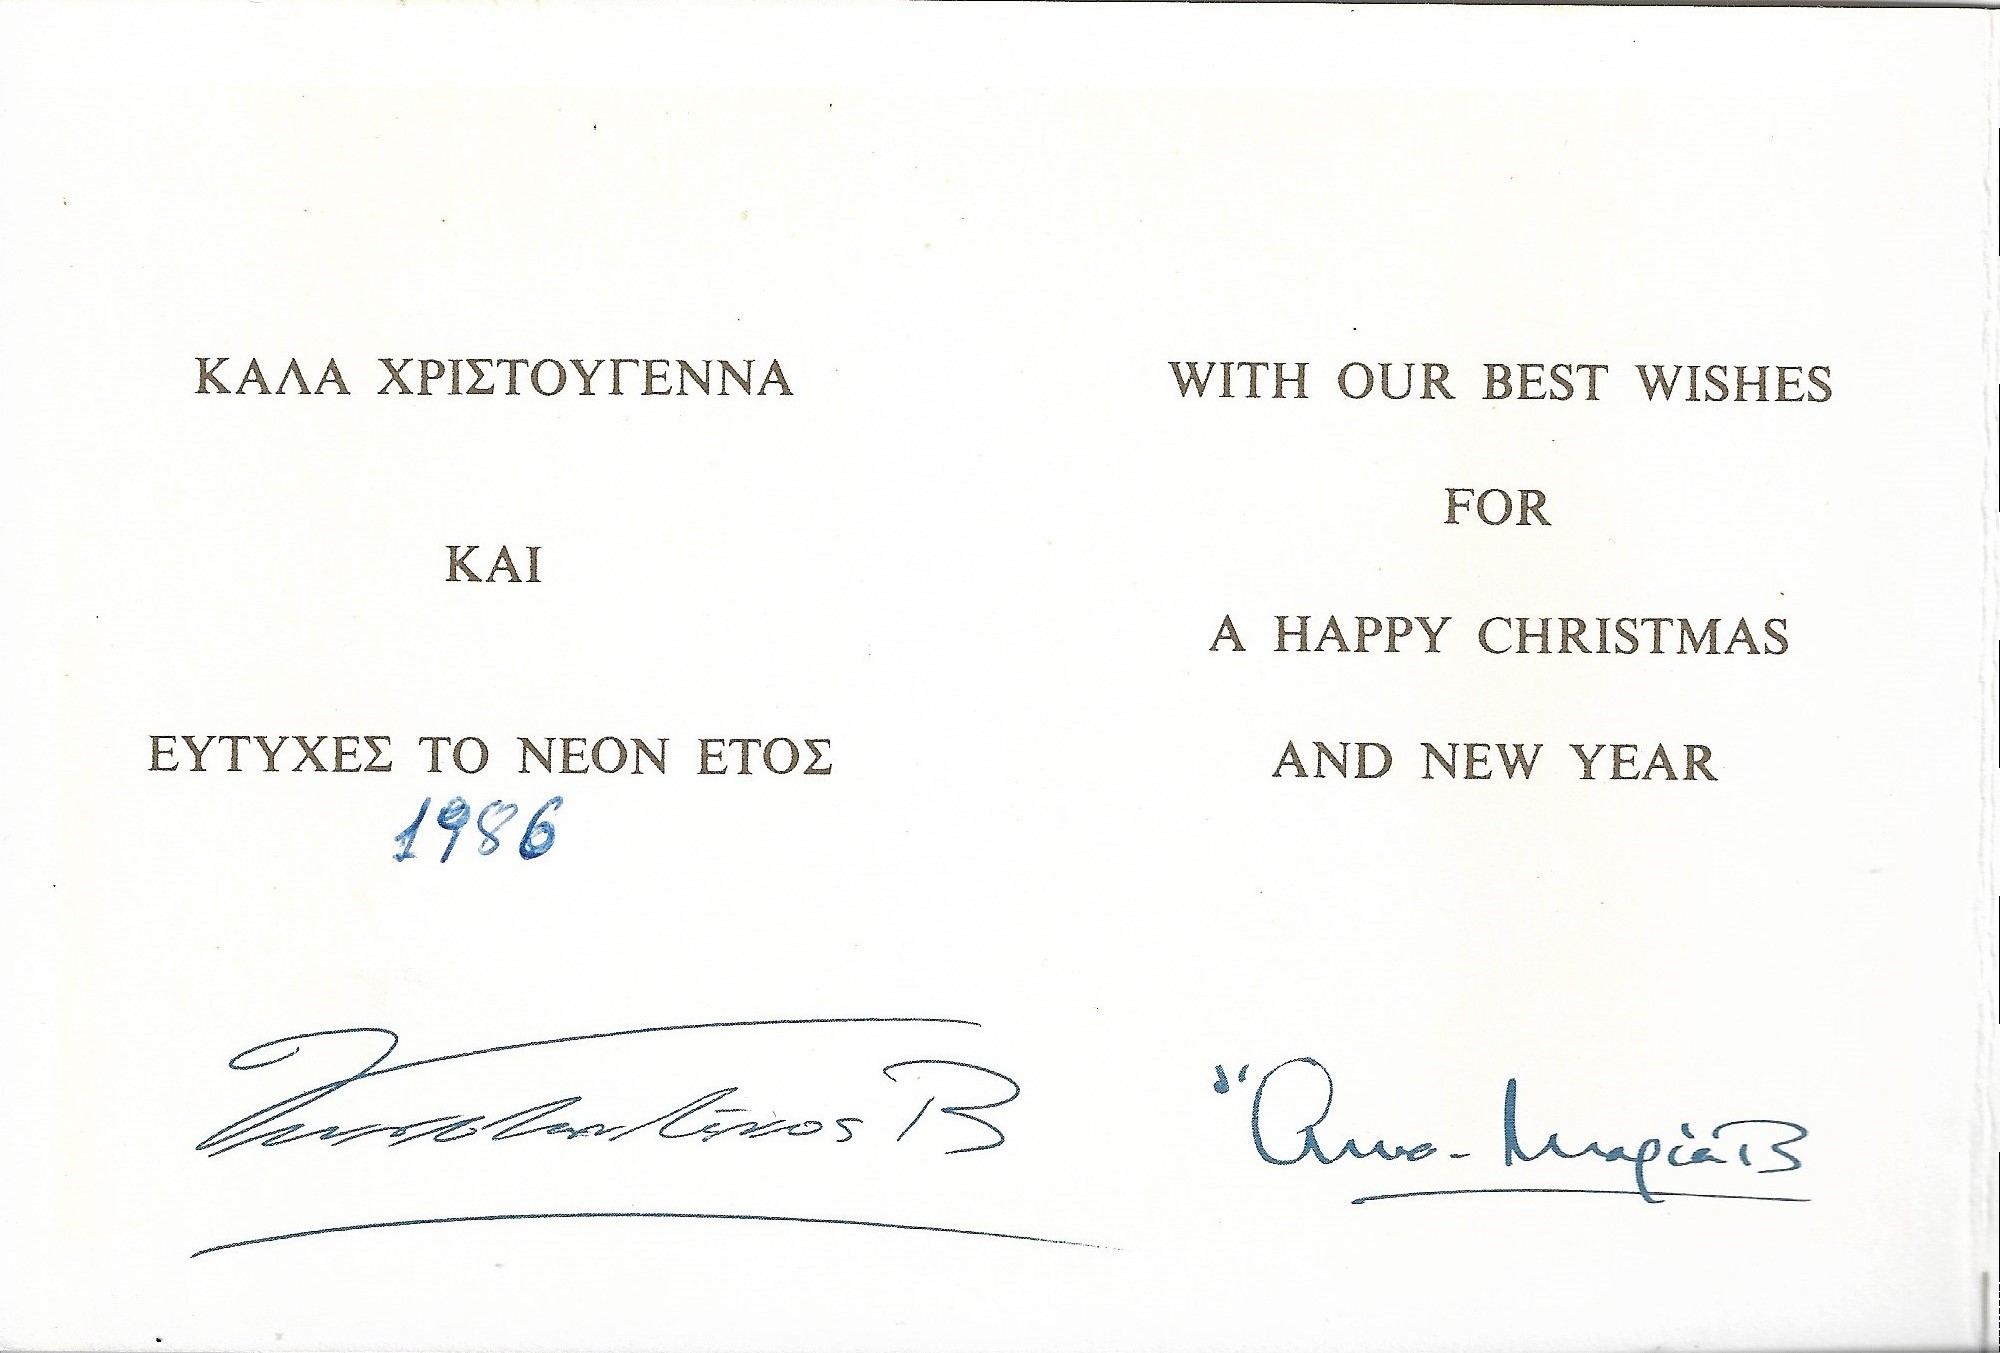 ΚΑΛΑ ΧΡΙΣΤΟΥΓΕΝΝΑ
ΚΑΙ
ΕΥΤΥΧΕΣ ΤΟ ΝΕΟΝ ΕΤΟΣ
1986
Κωνσταντῖνος Β
WITH OUR BEST WISHES
FOR
A HAPPY CHRISTMAS
AND NEW YEAR
Ἄννα-Μαρία Β